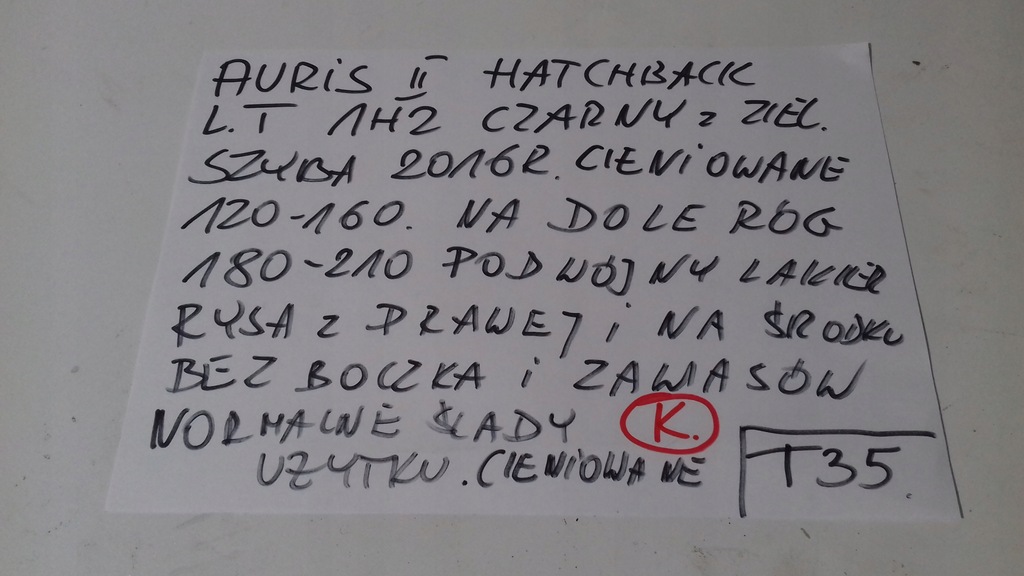 AURIS II HATCHBACK
L.T 1H2 CZARNY z ZIEL.
SZYBA 2016R. CIENIOWANE
120-160. NA DOLE RÓG
180-210 PODWÓJNY LAKIER
RYSA z PRAWEJ i NA ŚRODKU
BEZ BOCZKA i ZAWIASÓW
NORMALNE ŚLADY K.
UZYTKU. CIENIOWANE T35